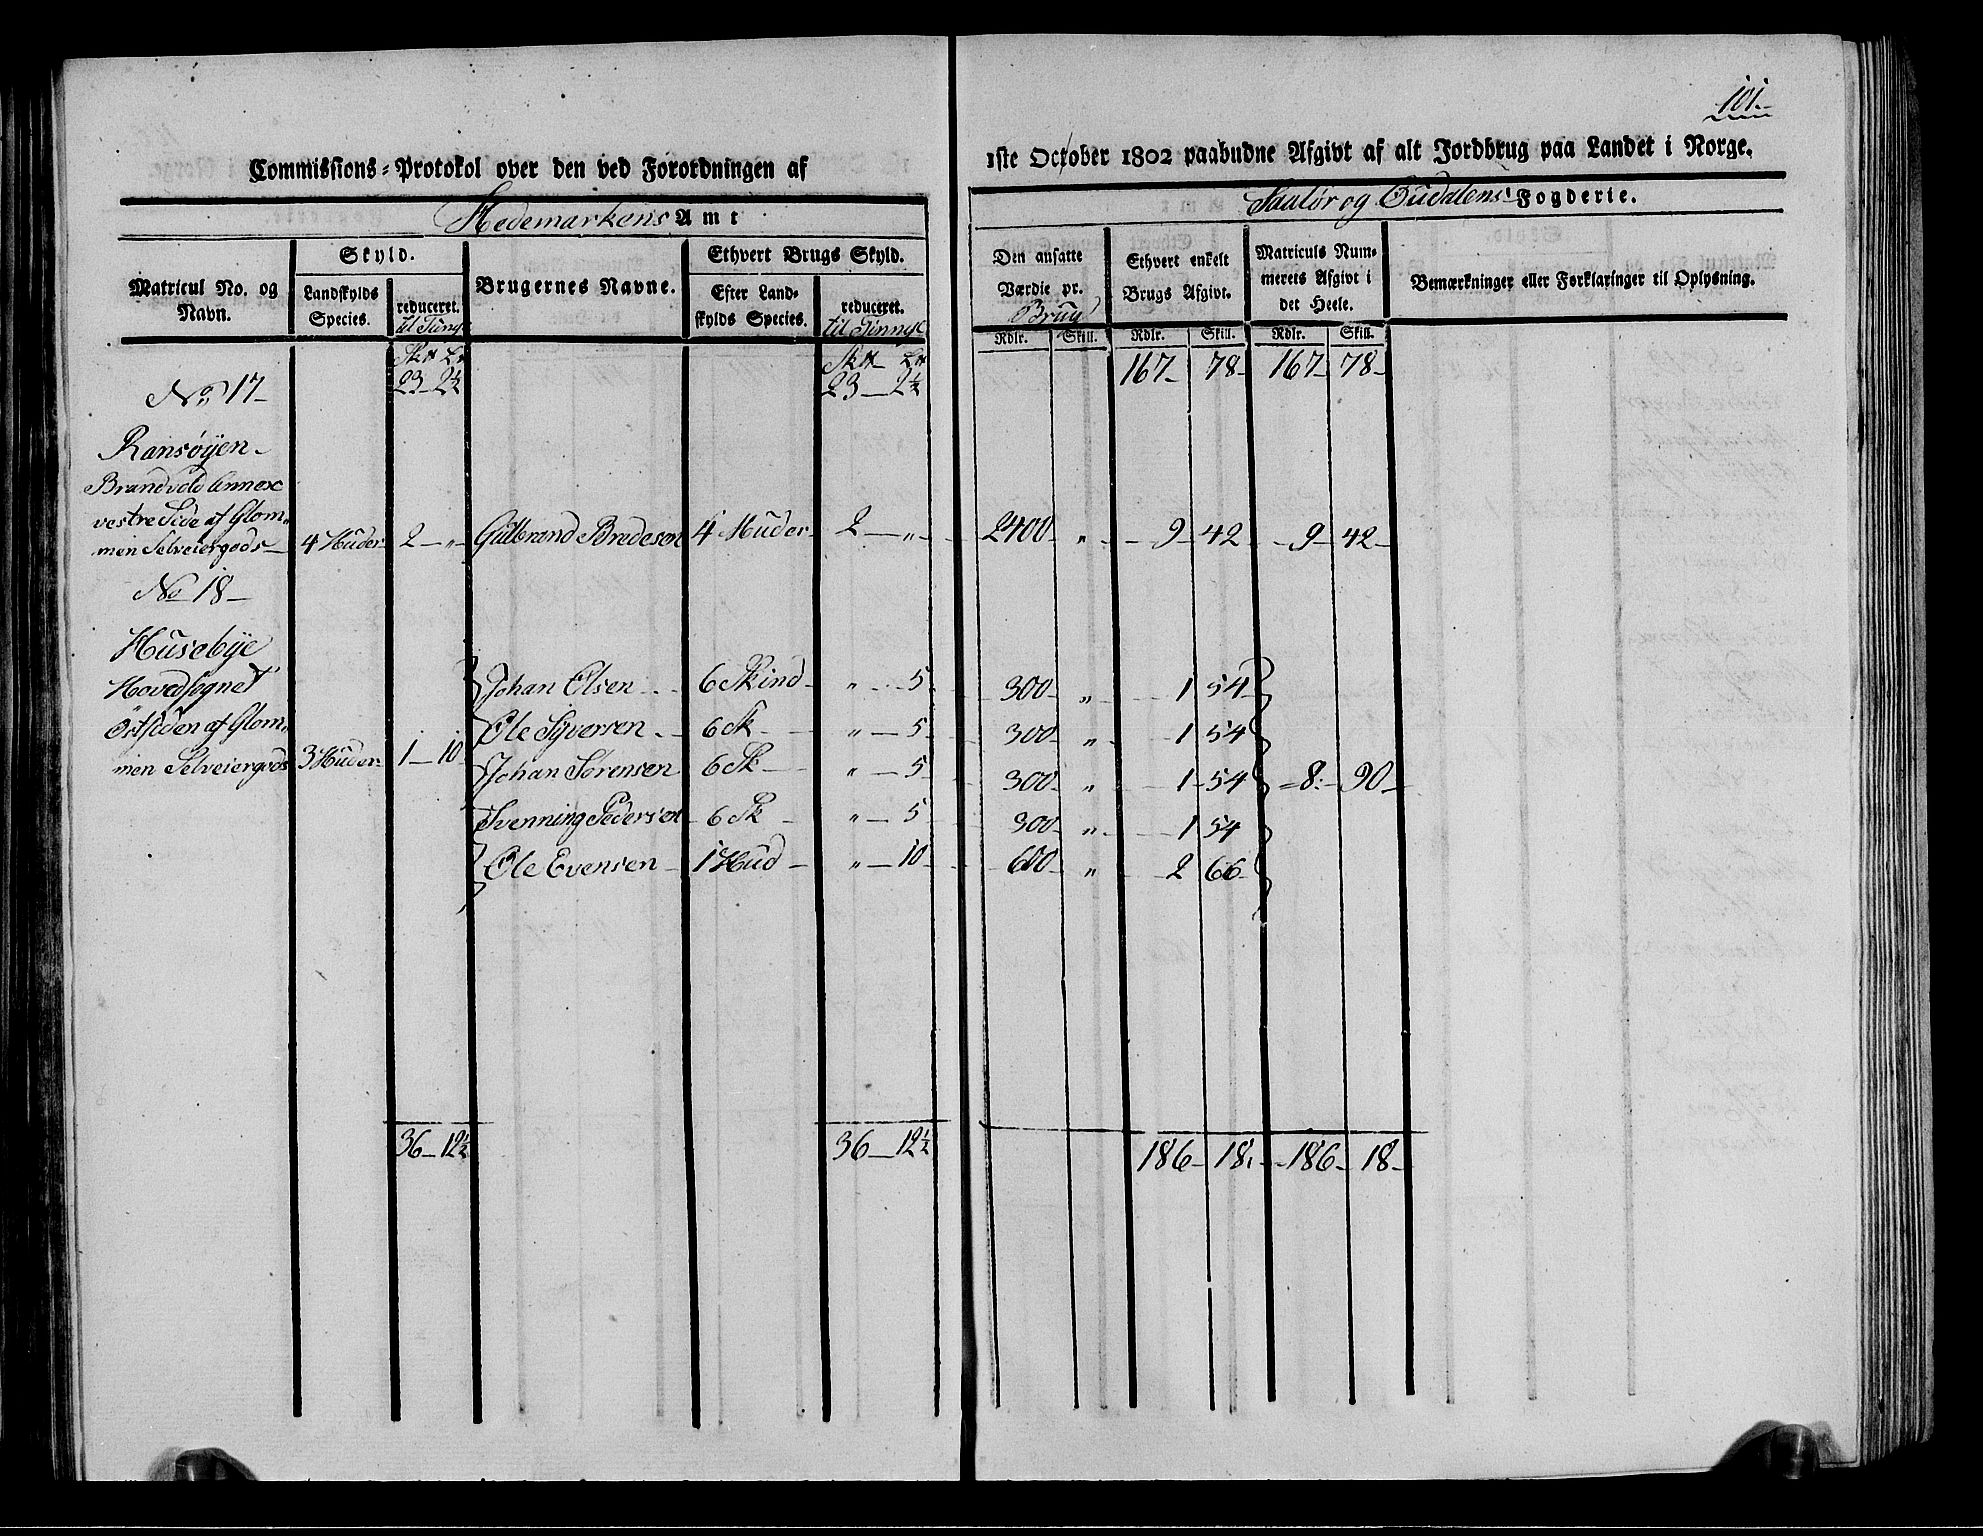 101.
Commissions-Protokol over den ved Forordningen af
1ste October 1802 paabudne Afgivt af alt Jordbrug paa Landet i Norge.
Hedemarkens Amt
Soulør og Oudalens Fogderie.
Matricul No. og Navn.
Skyld.
Landskylds Species.
reduceret.
Brugernes Navne.
Ethvert Brugs Skyld.
Efter Landskylds Species.
reduceret.
Den ansatte Værdie pr. Brug
Ethvert enkelt Brugs Afgivt.
Matriculs Nummerets Afgivt i det Heele.
Bemærkninger eller Forklaringer til Oplysning.
Rdlr. Skill. Rdlr. Skill. Rdlr. Skill.
23 - 2½ 23 - 2½ 167 - 78 - 167 - 78 -
No. 17 -
Ransøyen -
Brandvold Annex
vestre Side af Glom„
men Selveiergods - 4 Huder 2 - „ - Gulbrand Bredesen 4 Huder - 2 - „ - 2400 - „ - 9 - 42 - 9 - 42 -
No 18 -
Husebye
Hovedsognet Johan Olsen - 6 Skind - „ - 5 - 300 - „ - 1 54
Østsiden af Glom„ Ole Syversen - 6 Sk - „ - 5 300 - „ - 1 54
men Selveiergods 3 Huder - 1 - 10 Johan Sørensen 6 Sk - „ - 5 300 - „ - 1 - 54 - 8 - 90 -
Svenning Pedersen - 6 Sk - „ - 5 300 - „ - 1 54
Ole Evensen - 1 Hud - „ - 10 - 600 „ 2 66
36 - 12½ 36 - 12½ 186 - 18 - 186 - 18 -